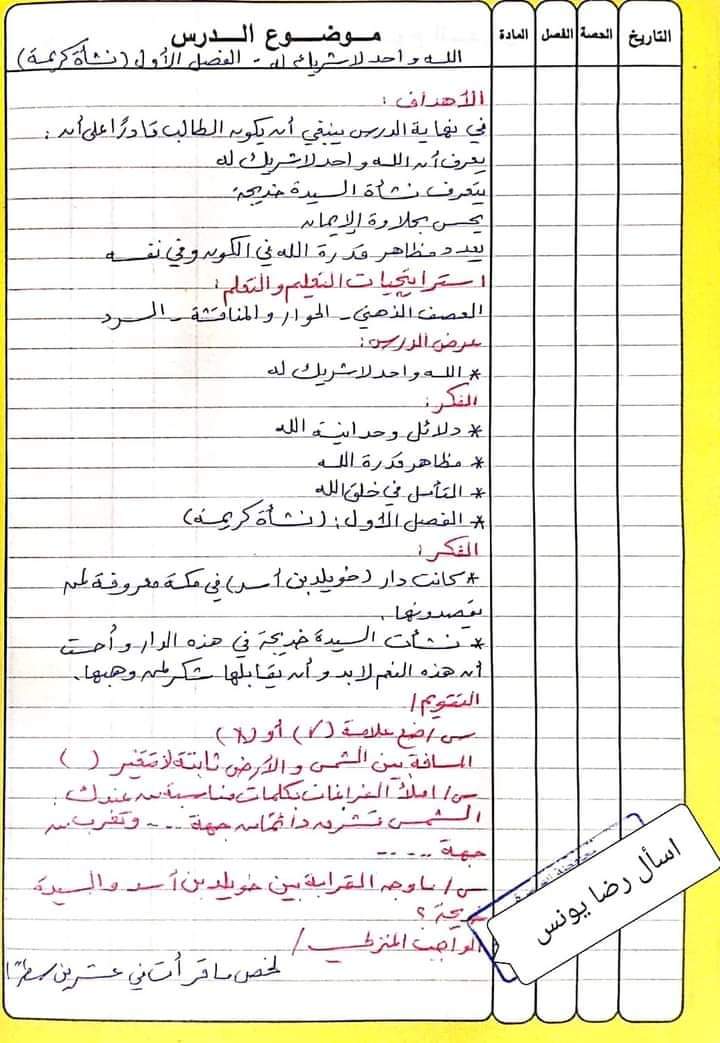 التاريخ الحصة الفصل المادة موضوع الدرس
الله واحد لا شريك له - الفصل الأول (نشأة كريمة)
الأهداف :
في نهاية الدرس ينبغي أن يكون الطالب قادرًا على أن :
يعرف أن الله واحد لا شريك له
يتعرف نشأة السيدة خديجة
يحس بحلاوة الإيمان
يعدد مظاهر قدرة الله في الكون وفي نفسه
استراتيجيات التعليم والتعلم :
العصف الذهني - الحوار والمناقشة - السرد
عرض الدرس :
* الله واحد لا شريك له
الفكر :
* دلائل وحدانية الله
* مظاهر قدرة الله
* التأمل في خلق الله
* الفصل الأول : (نشأة كريمة)
الفكر :
* كانت دار (خويلد بن أسد) في مكة معروفة لمن
يقصدونها .
* نشأت السيدة خديجة في هذه الدار وأحست
أن هذه النعم لابد وأن يقابلها شكر لمن وهبها .
التقويم /
س / ضع علامة (√) أو (x)
المسافة بين الشمس والأرض ثابتة لا تتغير ( )
س / املأ الفراغات بكلمات مناسبة من عندك :
الشمس تشرق دائمًا من جهة .... وتغرب من
جهة .....
س / ما وجه القرابة بين خويلد بن أسد والسيدة
خديجة ؟
الواجب المنزلي /
لخص ما قرأت في عشرين سطرًا
اسأل رضا يونس